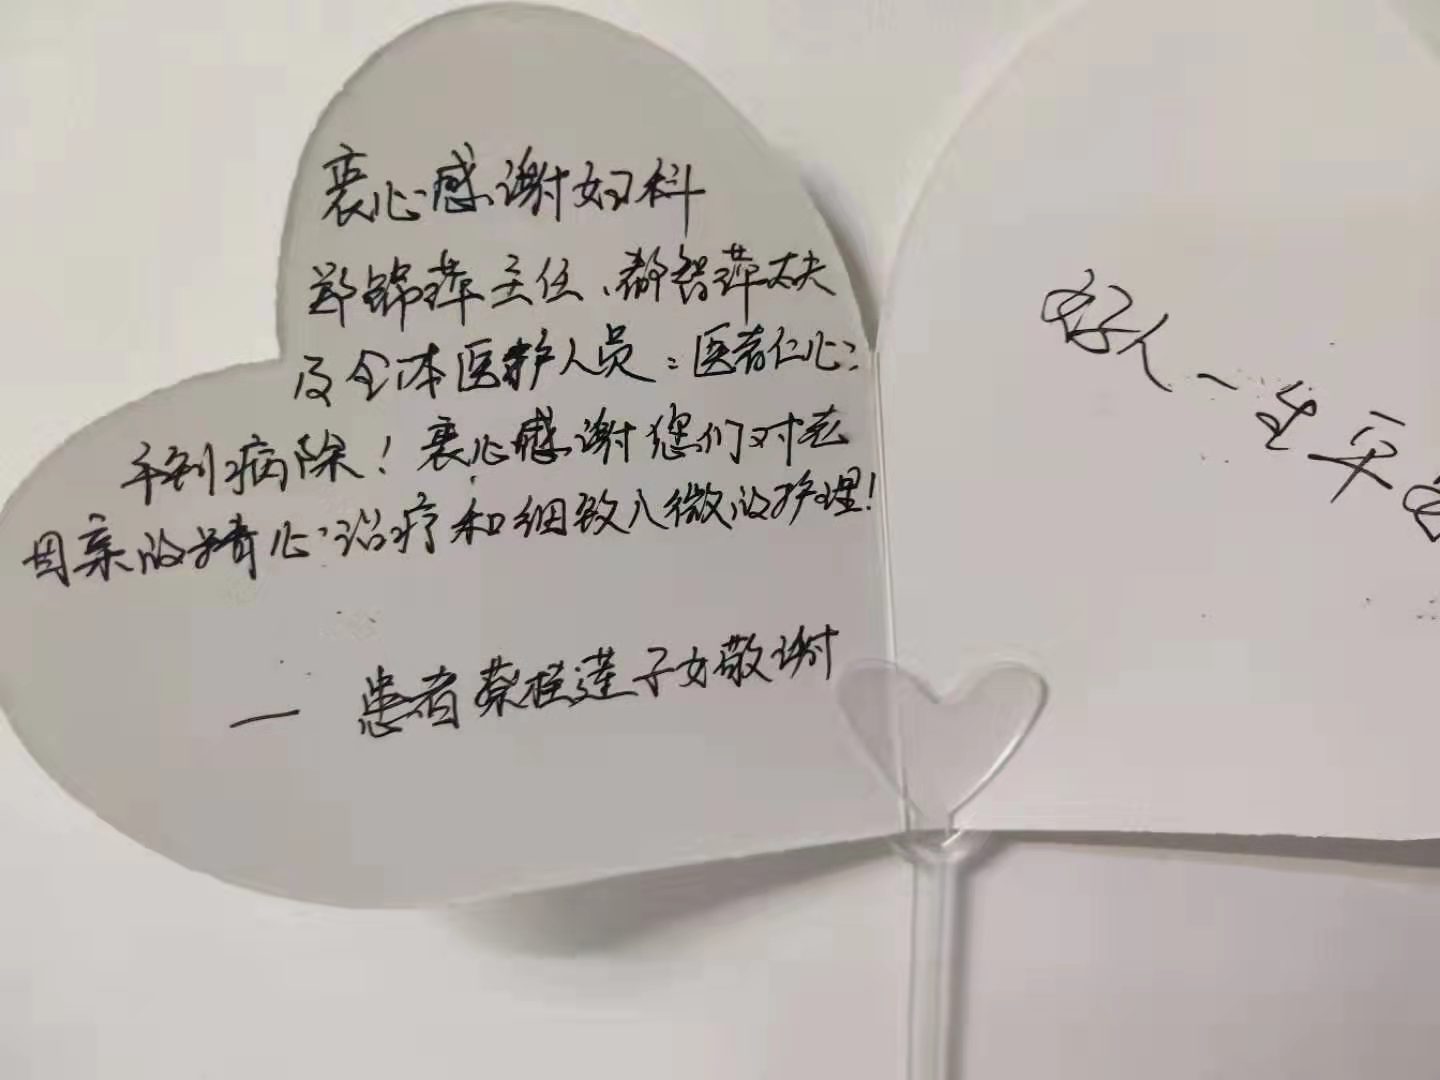 衷心感谢妇科
郑锦萍主任、郝智萍大夫
及全体医护人员：医者仁心：
手到病除！衷心感谢您们对老
母亲的精心治疗和细致入微的护理！
— 患者蔡桂莲子女敬谢
好人一生平